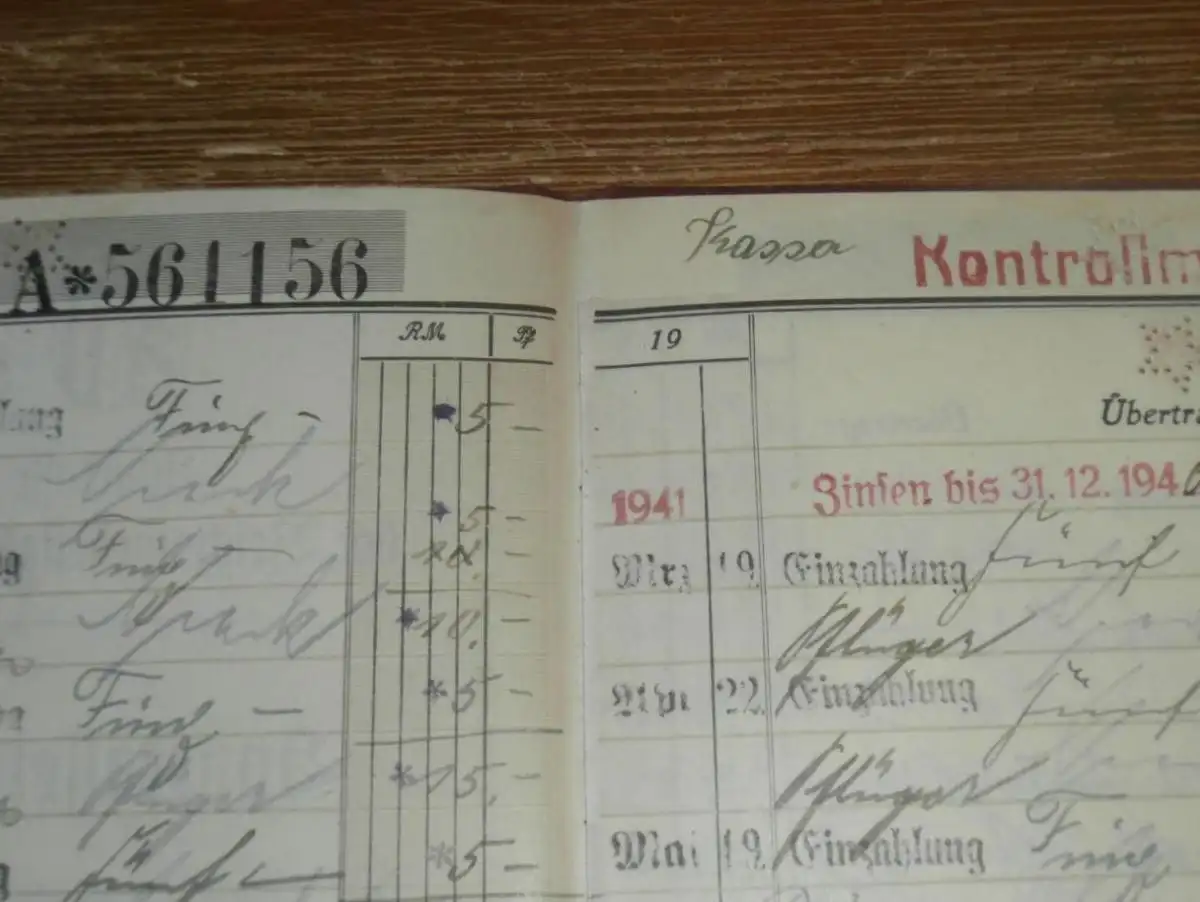 A*561156
RM Pf
Fünf — *5 —
*5 —
Fünf — 10. —
*10. —
Fünf — *5 —
*15. —
fünf — *5 —
Kassa Kontrollm
19
Übertra
1941 Zinsen bis 31. 12. 1940
Mrz 19 Einzahlung fünf
Pflüger
22 Einzahlung fünf
Pflüger
Mai 19 Einzahlung Fünf